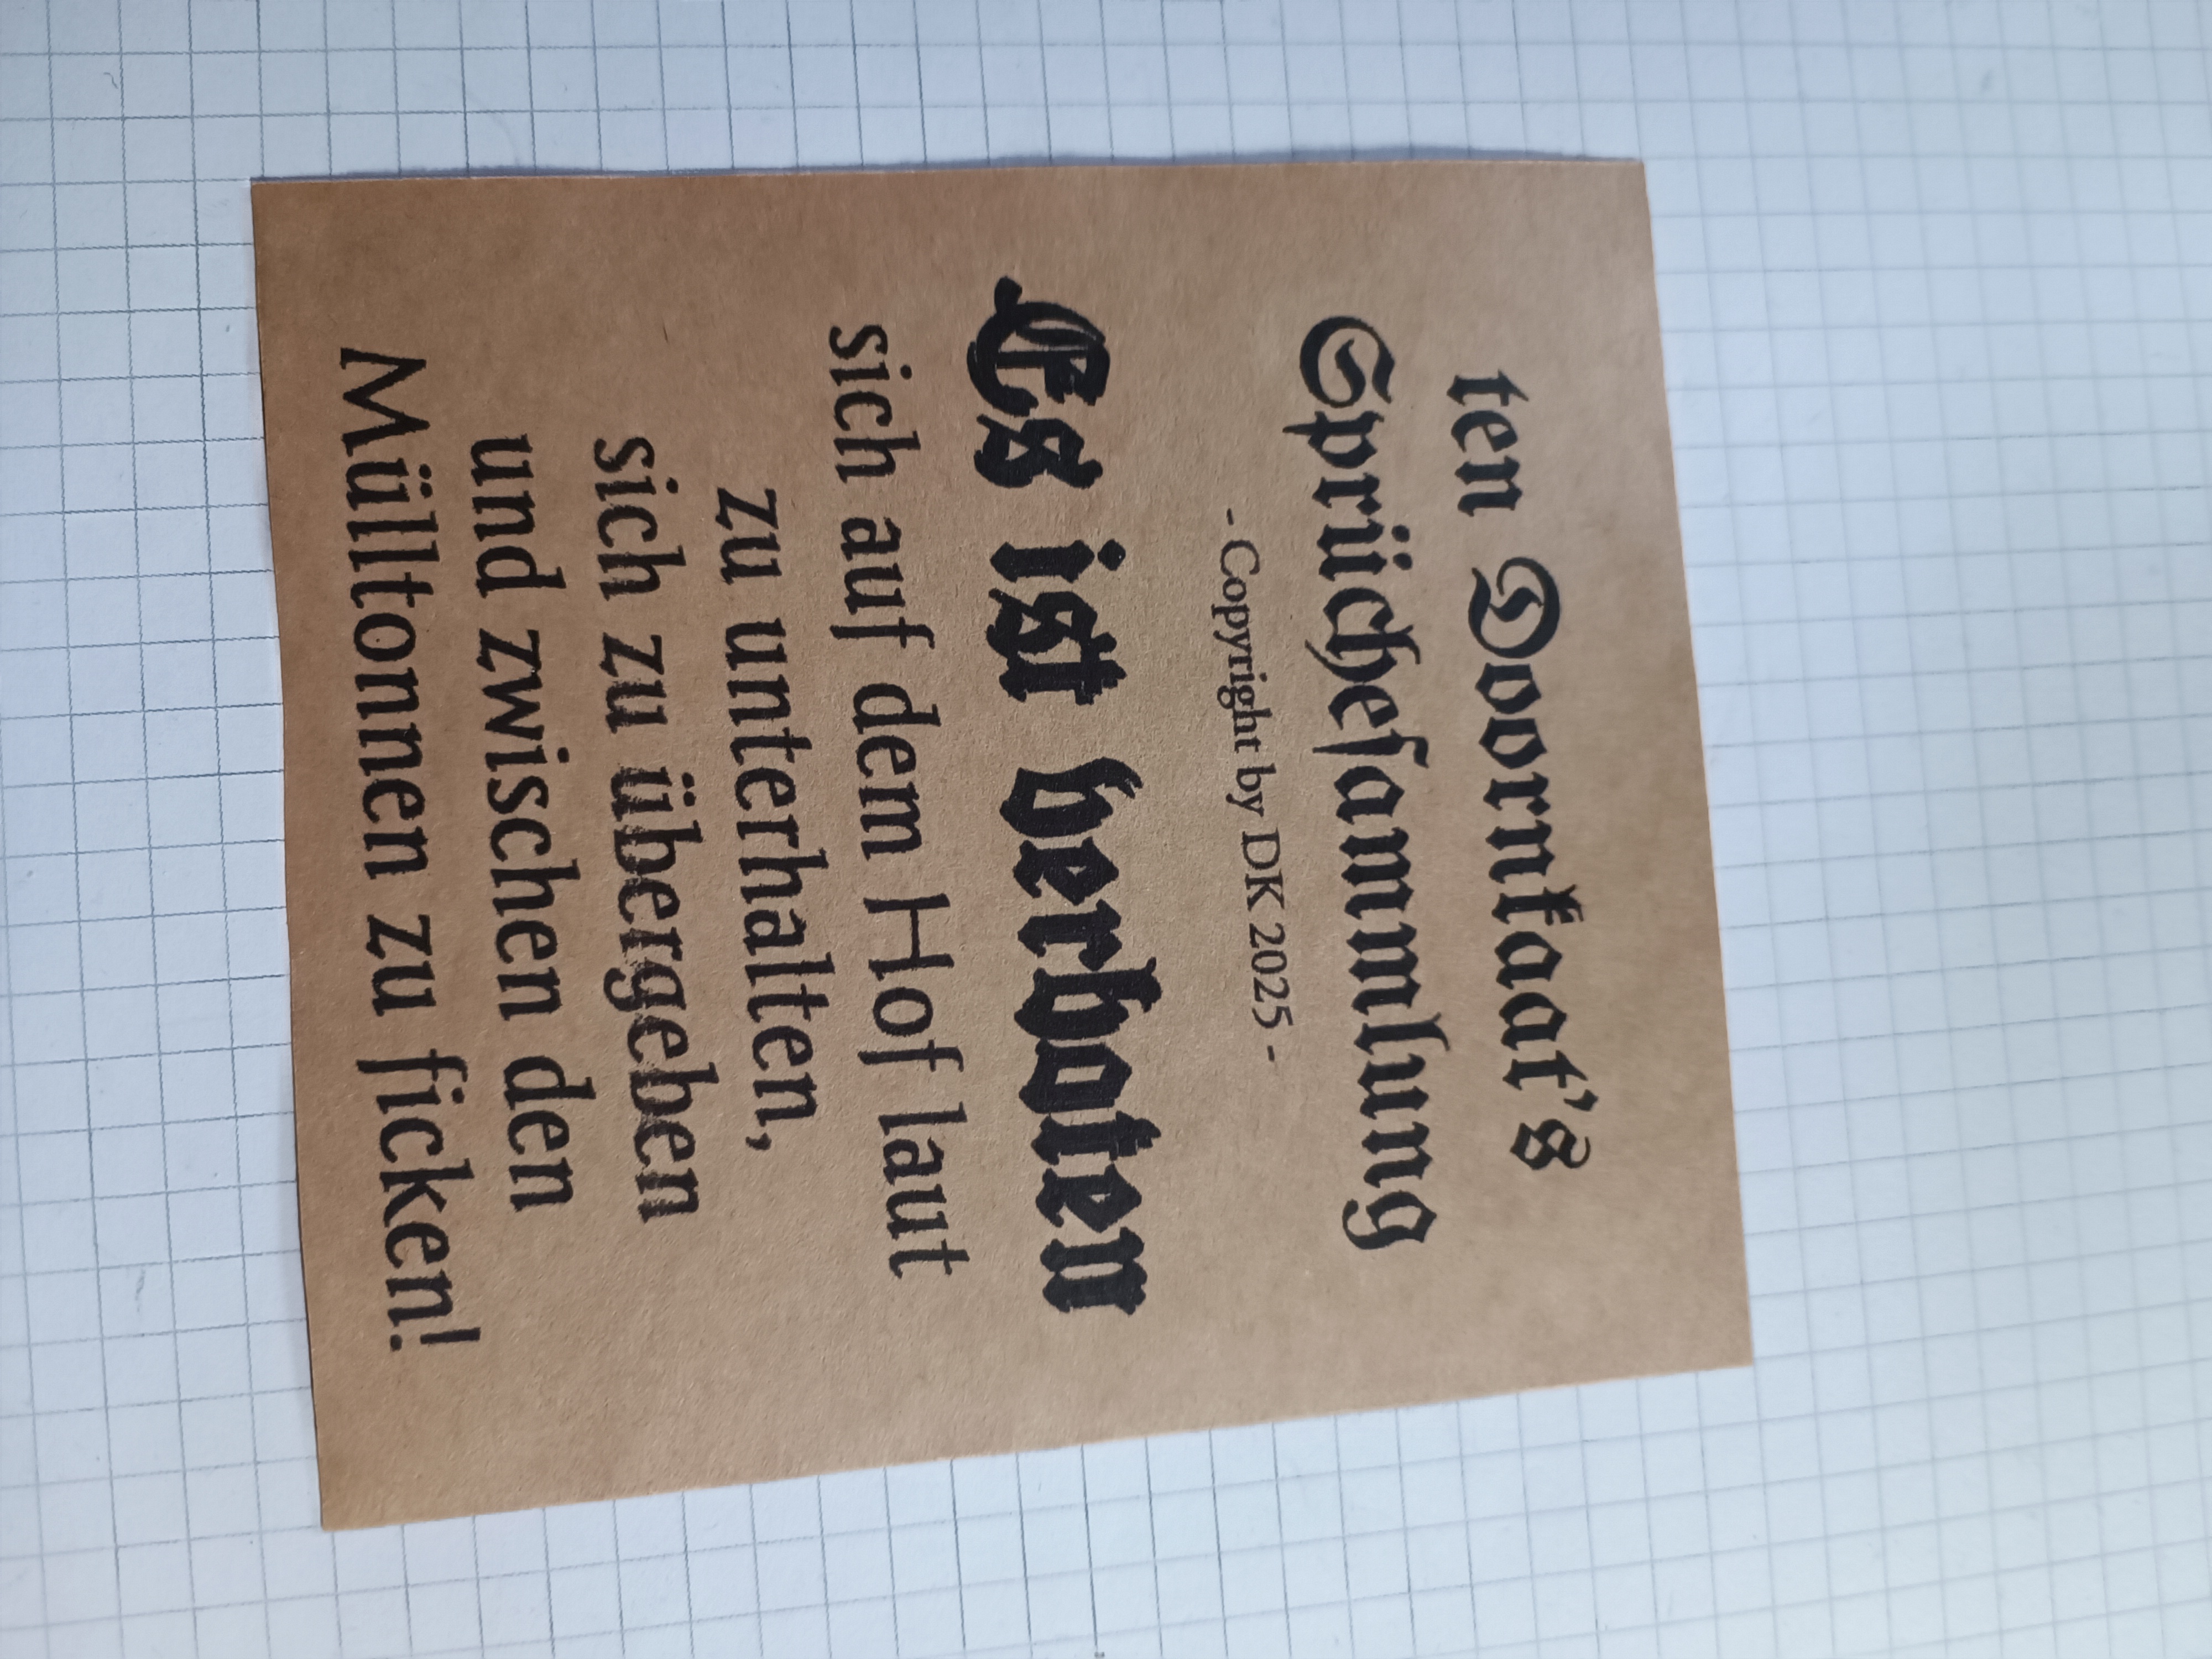 ten Doorntaat's
Sprüchesammlung
- Copyright by DK 2025 -
Es ist verboten
sich auf dem Hof laut
zu unterhalten,
sich zu übergeben
und zwischen den
Mülltonnen zu ficken!